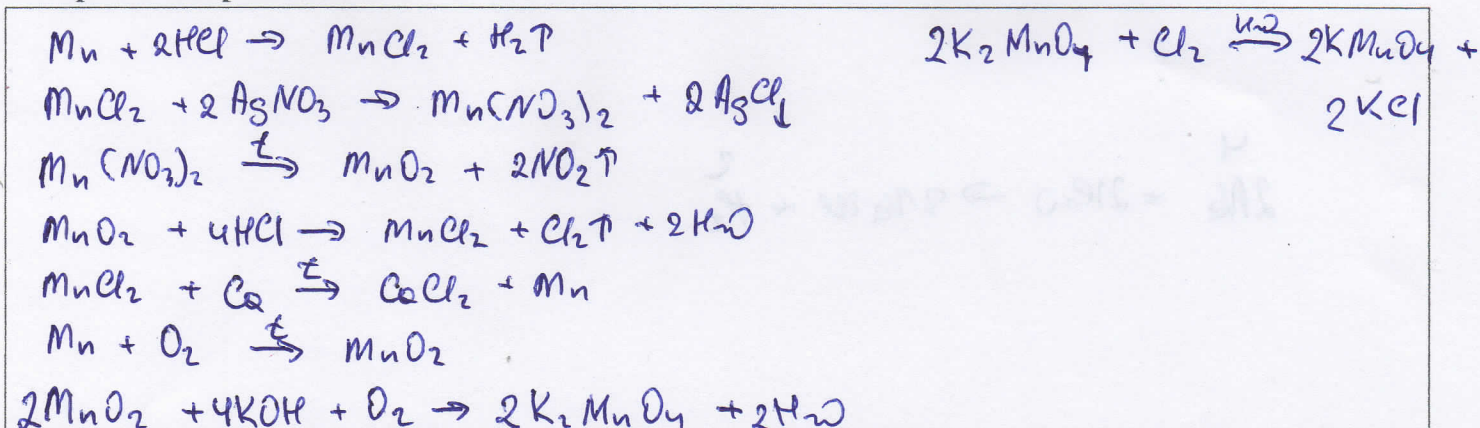 Mn + 2HCl → MnCl₂ + H₂↑
MnCl₂ + 2AgNO₃ → Mn(NO₃)₂ + 2AgCl↓
Mn(NO₃)₂ →(t) MnO₂ + 2NO₂↑
MnO₂ + 4HCl → MnCl₂ + Cl₂↑ + 2H₂O
MnCl₂ + Ca →(t) CaCl₂ + Mn
Mn + O₂ →(t) MnO₂
2MnO₂ + 4KOH + O₂ → 2K₂MnO₄ + 2H₂O
2K₂MnO₄ + Cl₂ →(H₂O) 2KMnO₄ +
2KCl